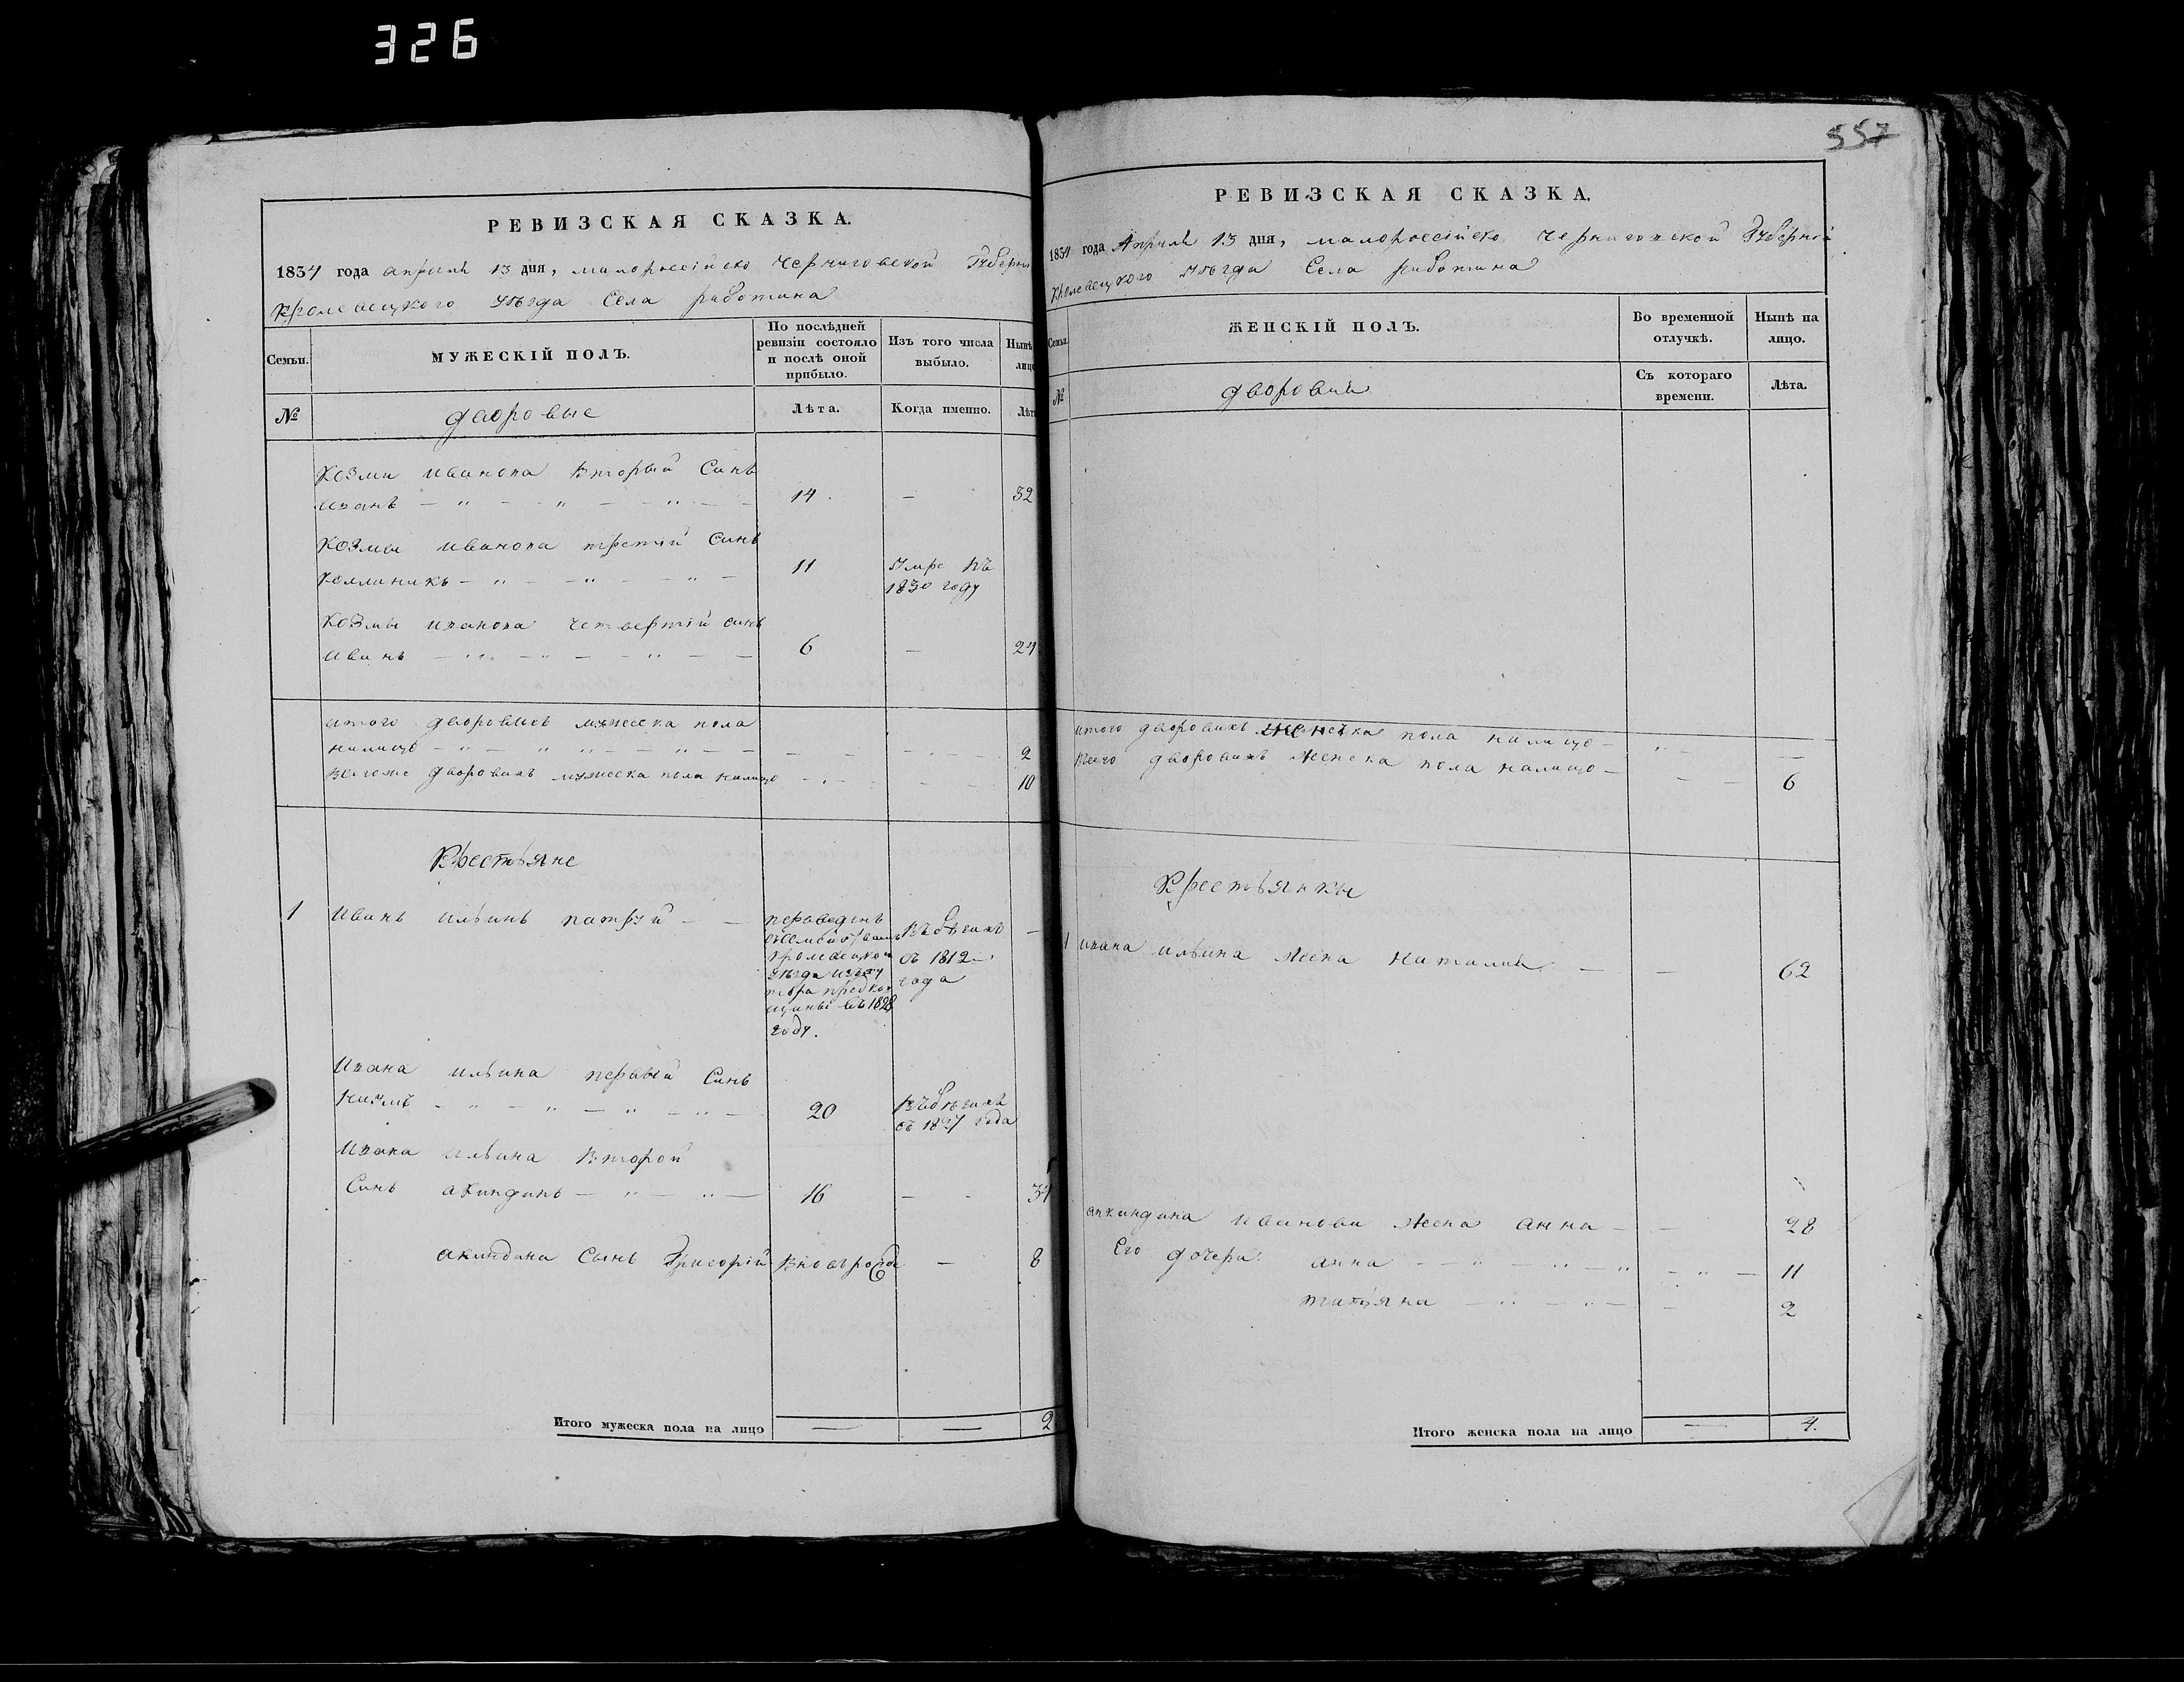 326
РЕВИЗСКАЯ СКАЗКА.
1834 года апреля 13 дня, малороссійско Черниговской Губерн
Кролевецкого уѣзда Села работина
Семьи.
МУЖЕСКІЙ ПОЛЪ.
По послѣдней ревизіи состояло и послѣ оной прибыло.
Изъ того числа выбыло.
Нынѣ лицо
№
дворовые
Лѣта.
Когда именно.
Лѣта
Козми Иванова Вторый Синъ
14 . — 32
Козмы Иванова третій Синъ
11 Умре въ
1830 году
Козмы Иванова четвертій синъ
Иванъ — 6 — 24
итого дворовихъ мужеска пола
налицо — 2
Всегоже дворовихъ мужеска пола налицо — 10
Крестьяне
1 Иванъ Ильинъ — — переведенъ
Въ бѣгахъ —
съ 1812
года
въ 1828
году.
Ивана Ильина первый Синъ
Наумъ — 20 Въ бѣгахъ
съ 1827 года
Ивана Ильина Второй
Синъ акиндинъ — 16 — 34
акиндина Сынъ Григорій вновь рожде — 8
Итого мужеска пола на лицо — — 2
557
РЕВИЗСКАЯ СКАЗКА.
1834 года Апреля 13 дня, малороссійско Черниговской Губерній
Кролевецкого уѣзда Села работина
Семьи.
ЖЕНСКІЙ ПОЛЪ.
Во временной отлучкѣ.
Нынѣ на лицо.
№
дворовий
Съ котораго времени.
Лѣта.
итого дворовихъ женска пола налицо — —
Всего дворовихъ женска пола налицо — — 6
Крестьянки
1 Ивана Ильина жена Наталия — — 62
акиндина Иванова жена анна — — 28
Его дочери: анна — 11
татьяна — 2
Итого женска пола на лицо — 4.